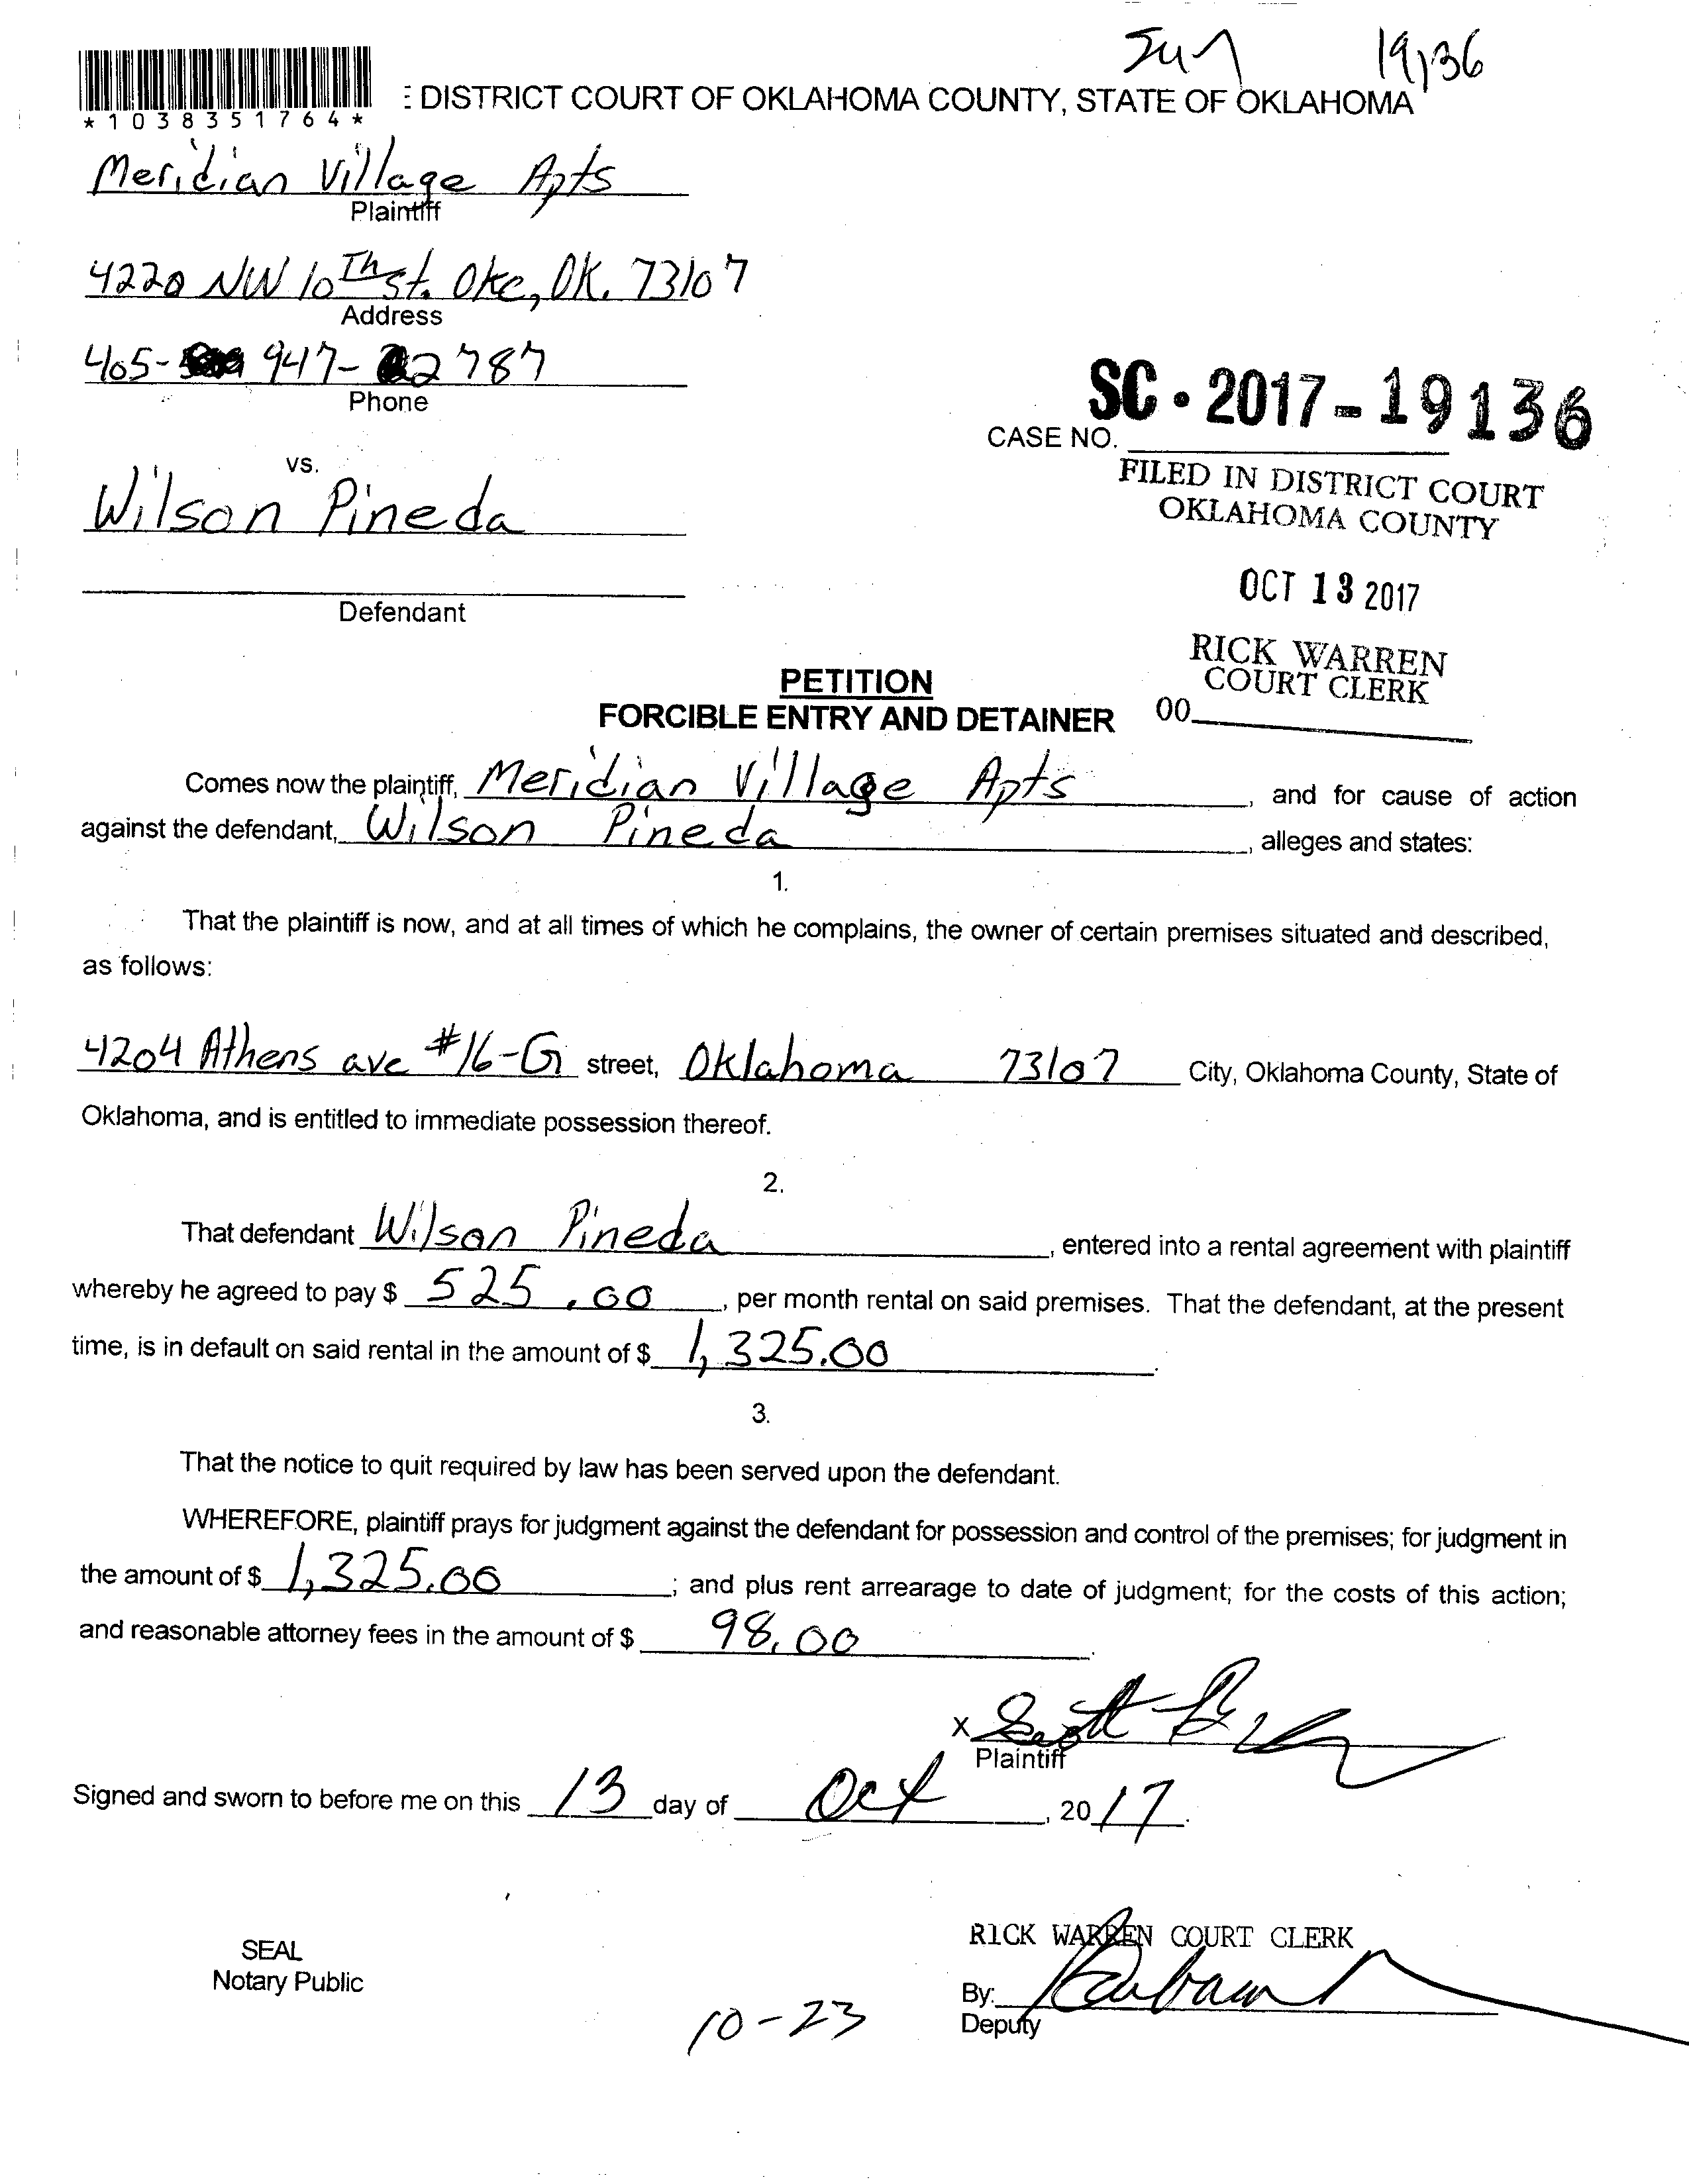 19136
DISTRICT COURT OF OKLAHOMA COUNTY, STATE OF OKLAHOMA
*1038351764*
Meridian Village Apts
Plaintiff
4220 NW 10Th st. Okc, OK. 73107
Address
405- 947- 2787
Phone
SC-2017-19136
CASE NO.
vs.
FILED IN DISTRICT COURT
OKLAHOMA COUNTY
Wilson Pineda
OCT 13 2017
Defendant
RICK WARREN
COURT CLERK
00
PETITION
FORCIBLE ENTRY AND DETAINER
Comes now the plaintiff, Meridian Village Apts, and for cause of action
against the defendant, Wilson Pineda, alleges and states:
1.
That the plaintiff is now, and at all times of which he complains, the owner of certain premises situated and described,
as follows:
4204 Athens ave #16-G street, Oklahoma 73107 City, Oklahoma County, State of
Oklahoma, and is entitled to immediate possession thereof.
2.
That defendant Wilson Pineda, entered into a rental agreement with plaintiff
whereby he agreed to pay $ 525.00, per month rental on said premises. That the defendant, at the present
time, is in default on said rental in the amount of $ 1,325.00.
3.
That the notice to quit required by law has been served upon the defendant.
WHEREFORE, plaintiff prays for judgment against the defendant for possession and control of the premises; for judgment in
the amount of $ 1,325.00; and plus rent arrearage to date of judgment; for the costs of this action;
and reasonable attorney fees in the amount of $ 98.00.
x Scott
Plaintiff
Signed and sworn to before me on this 13 day of Oct, 2017.
RICK WARREN COURT CLERK
SEAL
Notary Public
By:
Deputy
10-23